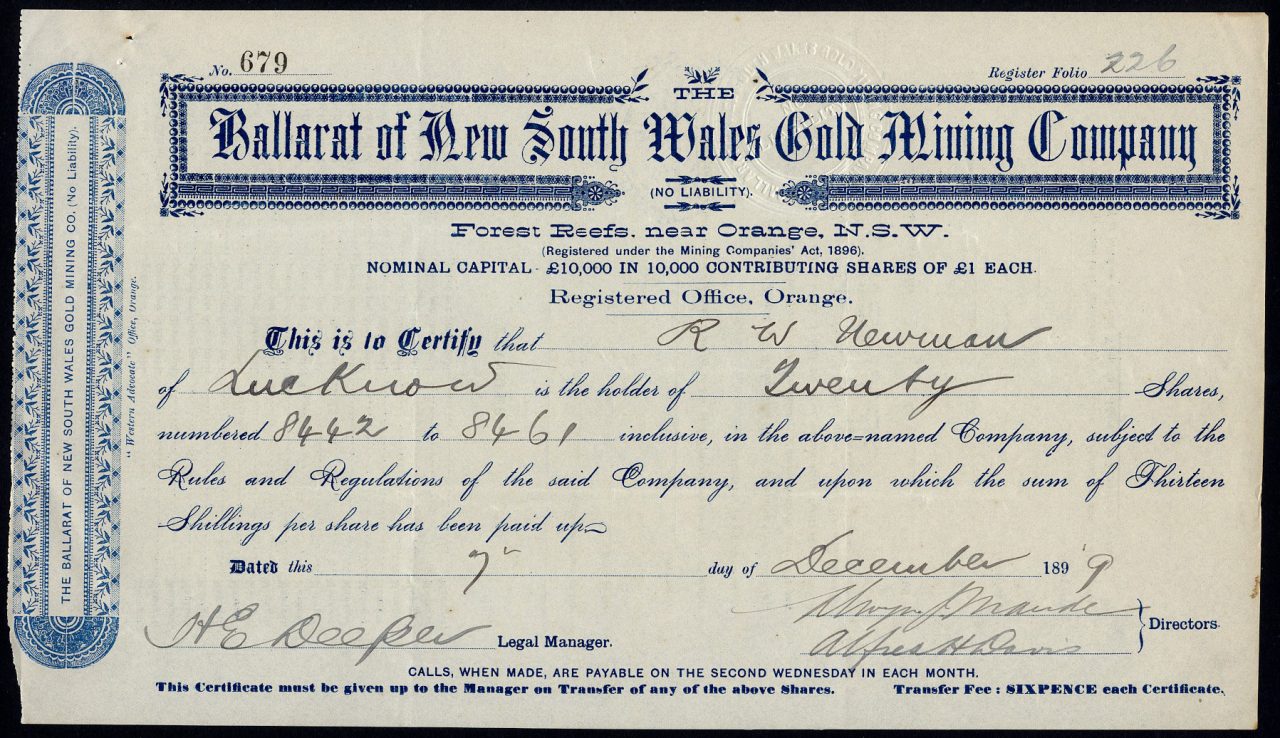 No. 679
Register Folio 226
THE
Ballarat of New South Wales Gold Mining Company
(NO LIABILITY).
Forest Reefs. near Orange, N.S.W.
(Registered under the Mining Companies' Act, 1896).
NOMINAL CAPITAL - £10,000 IN 10,000 CONTRIBUTING SHARES OF £1 EACH.
Registered Office, Orange.
This is to Certify that R W Newman
of Lucknow is the holder of Twenty Shares,
numbered 8442 to 8461 inclusive, in the above=named Company, subject to the
Rules and Regulations of the said Company, and upon which the sum of Thirteen
Shillings per share has been paid up
Dated this 7 day of December 1899
H E Legal Manager.
Directors.
Alfred H Davis
CALLS, WHEN MADE, ARE PAYABLE ON THE SECOND WEDNESDAY IN EACH MONTH.
This Certificate must be given up to the Manager on Transfer of any of the above Shares. Transfer Fee : SIXPENCE each Certificate.
THE BALLARAT OF NEW SOUTH WALES GOLD MINING CO. (No Liability).
"Western Advocate" Office, Orange.